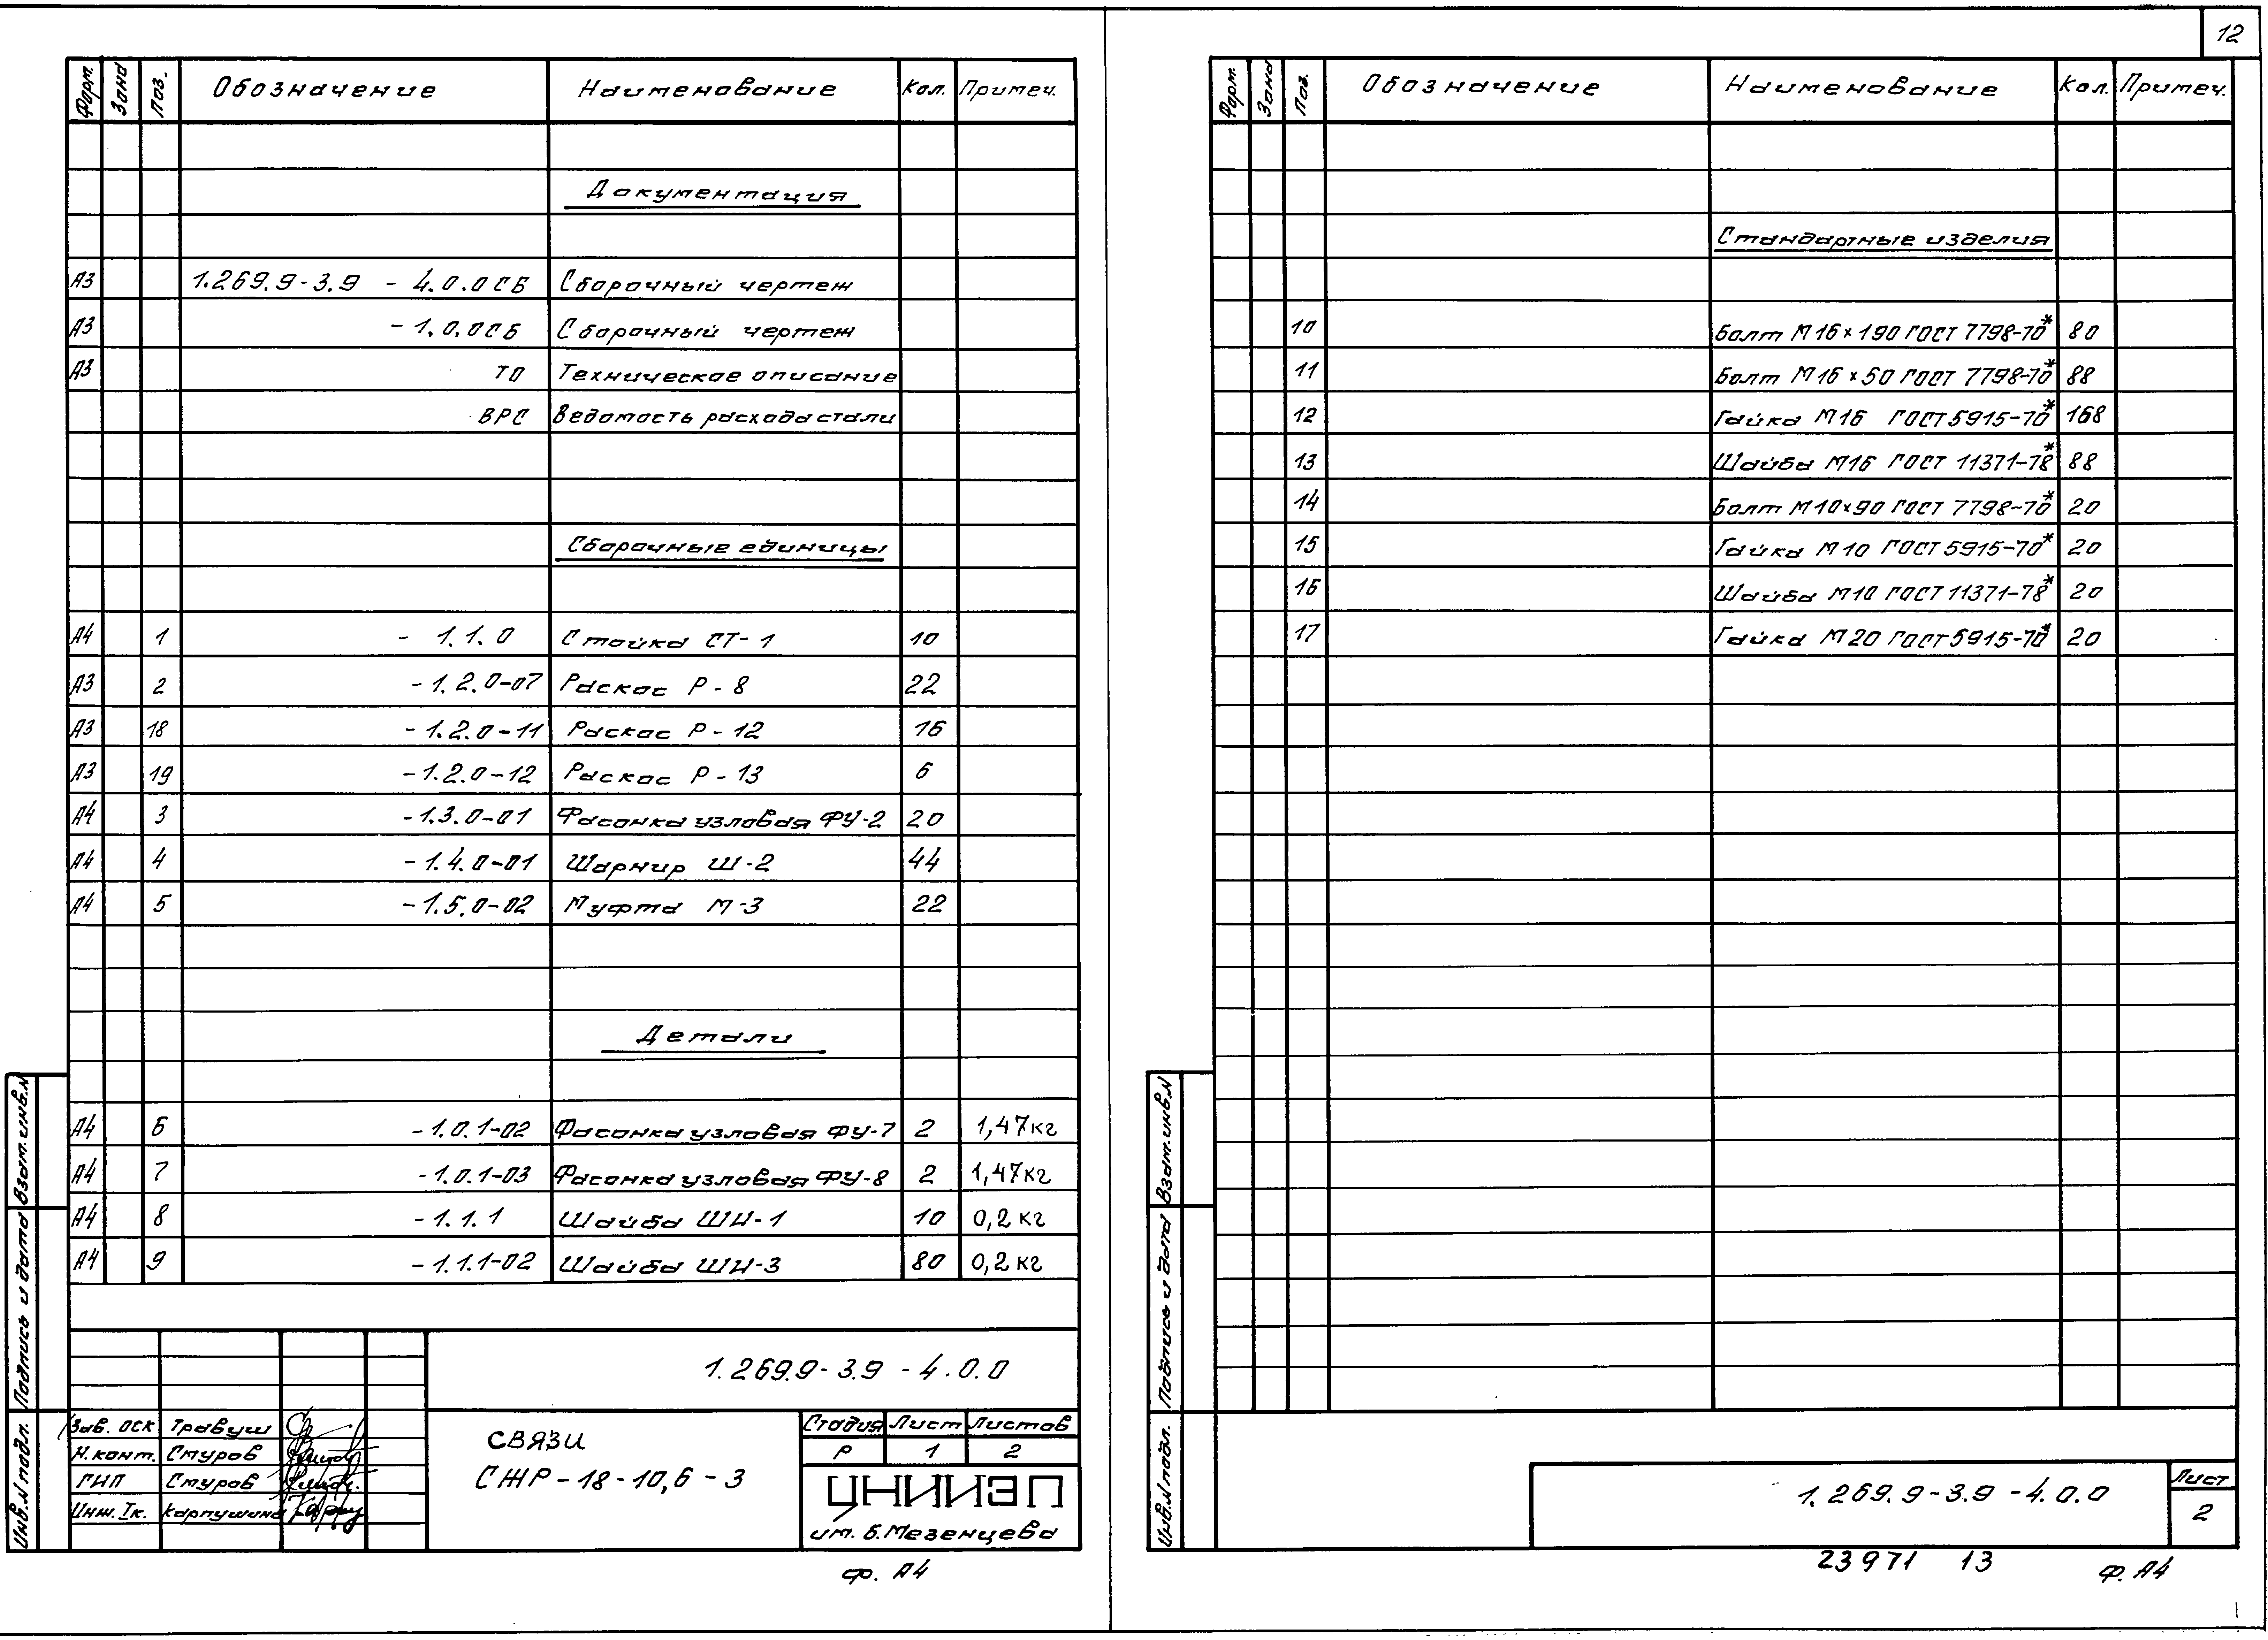 12
Форм. Зона Поз. Обозначение Наименование Кол. Примеч.
Документация
А3 1.269.9-3.9 - 4.0.0СБ Сборочный чертеж
А3 - 1.0.0СБ Сборочный чертеж
А3 ТО Техническое описание
ВРС Ведомость расхода стали
Сборочные единицы
А4 1 - 1.1.0 Стойка СТ-1 10
А3 2 - 1.2.0-07 Раскос Р-8 22
А3 18 - 1.2.0-11 Раскос Р-12 16
А3 19 - 1.2.0-12 Раскос Р-13 6
А4 3 - 1.3.0-01 Фасонка узловая ФУ-2 20
А4 4 - 1.4.0-01 Шарнир Ш-2 44
А4 5 - 1.5.0-02 Муфта М-3 22
Детали
А4 6 - 1.0.1-02 Фасонка узловая ФУ-7 2 1,47кг
А4 7 - 1.0.1-03 Фасонка узловая ФУ-8 2 1,47кг
А4 8 - 1.1.1 Шайба ШИ-1 10 0,2 кг
А4 9 - 1.1.1-02 Шайба ШИ-3 80 0,2 кг
Взам.инв.N
Подпись и дата
Инв.N подл.
1.269.9-3.9 -4.0.0
Зав. ОСК Травуш
Н.конт. Стуров
ГИП Стуров
Инж. Iк. Карпушина
СВЯЗИ
СЖР-18-10,6-3
Стадия Лист Листов
Р 1 2
ЦНИИЭП
им. Б.Мезенцева
Ф. А4
Форм. Зона Поз. Обозначение Наименование Кол. Примеч.
Стандартные изделия
10 Болт М16×190 ГОСТ 7798-70* 80
11 Болт М16×50 ГОСТ 7798-70* 88
12 Гайка М16 ГОСТ 5915-70* 168
13 Шайба М16 ГОСТ 11371-78* 88
14 Болт М10×90 ГОСТ 7798-70* 20
15 Гайка М10 ГОСТ 5915-70* 20
16 Шайба М10 ГОСТ 11371-78* 20
17 Гайка М20 ГОСТ 5915-70* 20
Взам.инв.N
Подпись и дата
Инв.N подл.
1.269.9-3.9 -4.0.0
Лист
2
23971 13
Ф. А4